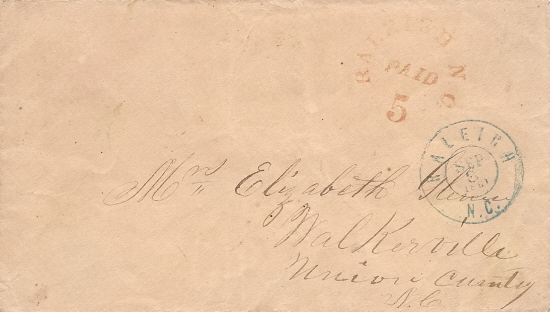 RALEIGH N C
PAID
5
RALEIGH
SEP
3
1861
N.C.
Mrs Elizabeth
Walkerville
Union County
N.C